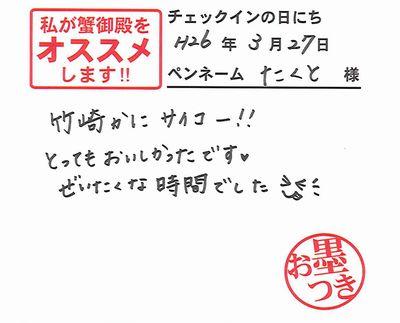 私が蟹御殿を
オススメ
します!!
チェックインの日にち
H26 年 3 月 27 日
ペンネーム たくと 様
竹崎かに サイコー!!
とってもおいしかったです♥
ぜいたくな時間でした
お墨つき